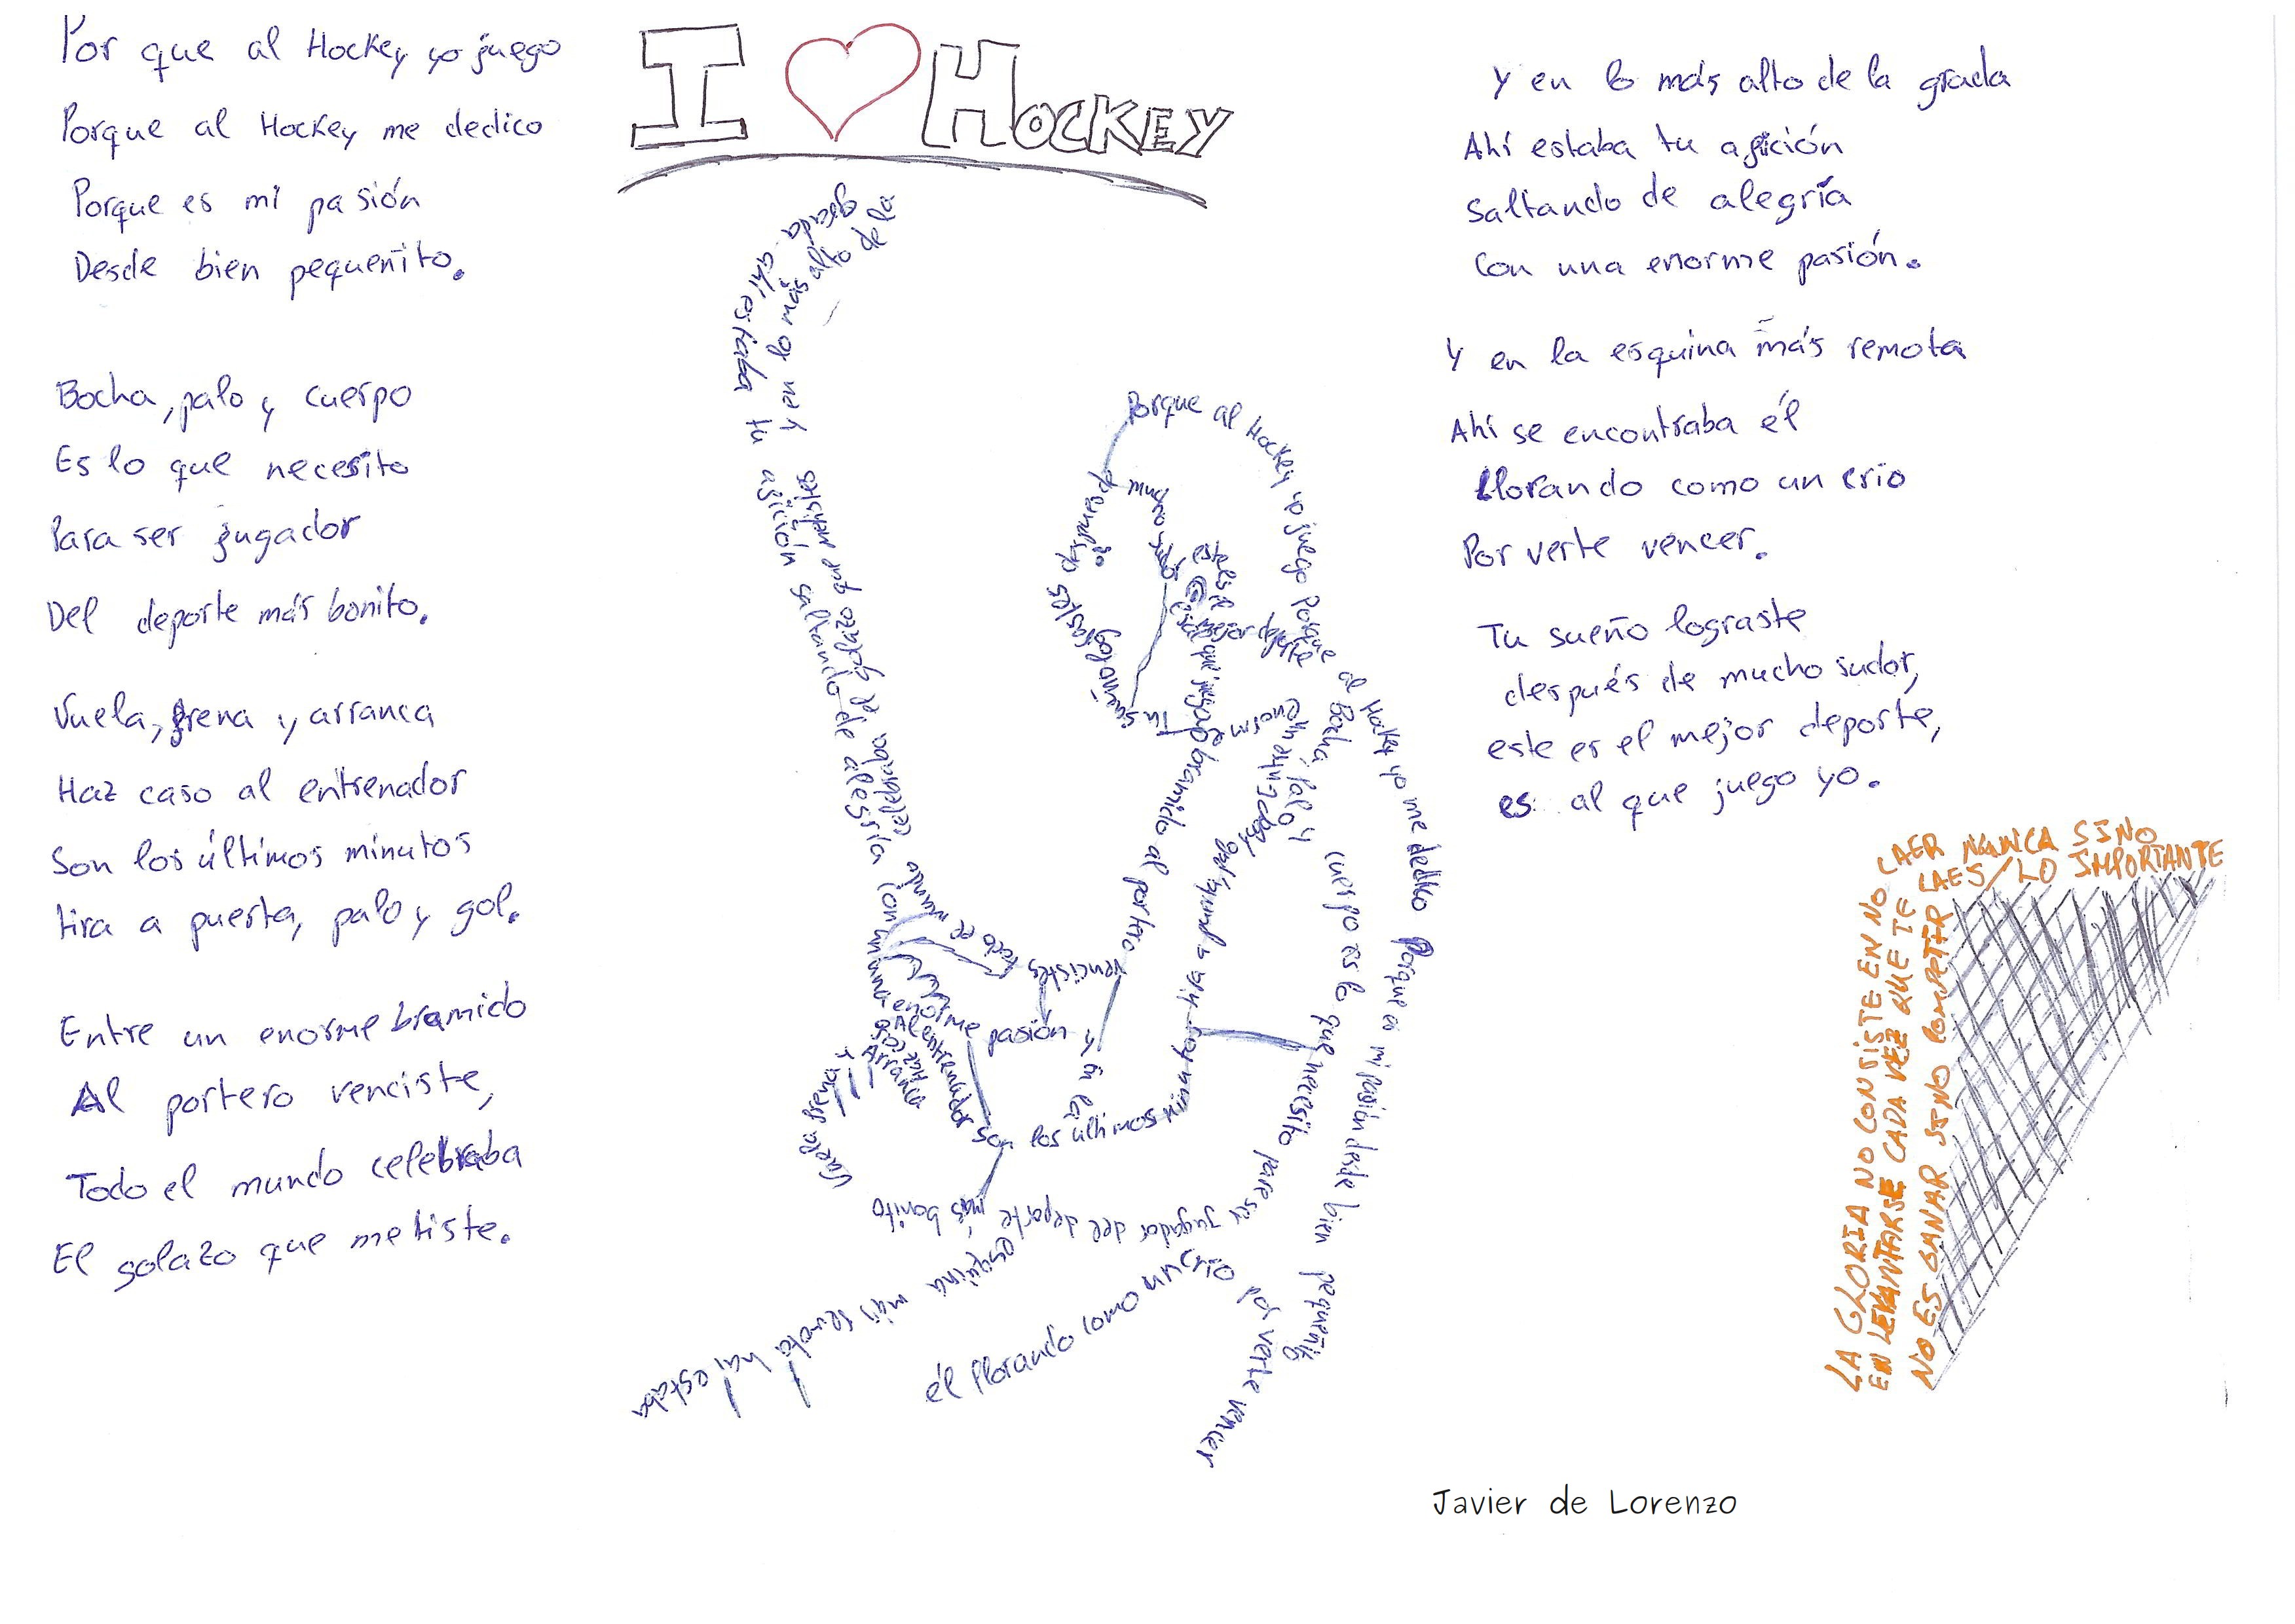 I ♥ HOCKEY
Por que al Hockey yo juego
Porque al Hockey me dedico
Porque es mi pasión
Desde bien pequeñito.
Bocha, palo y cuerpo
Es lo que necesito
Para ser jugador
Del deporte más bonito.
Vuela, frena y arranca
Haz caso al entrenador
Son los últimos minutos
tira a puerta, palo y gol.
Entre un enorme bramido
Al portero venciste,
Todo el mundo celebraba
El golazo que metiste.
Y en lo más alto de la grada
Ahí estaba tu afición
Saltando de alegría
Con una enorme pasión.
Y en la esquina más remota
Ahí se encontraba él
Llorando como un crio
Por verte vencer.
Tu sueño lograste
después de mucho sudor,
este es el mejor deporte,
es al que juego yo.
Y en lo más alto de la
grada ahí estaba tu afición saltando de alegría con una enorme pasión y en la
esquina más remota
él llorando como un crio por verte vencer
Porque al Hockey yo juego Porque al Hockey yo me dedico Porque es mi pasión desde bien pequeñito
Bocha, palo y cuerpo es lo que necesito para ser jugador del deporte más bonito
Vuela, frena y
Arranca
Haz caso
Al entrenador son los últimos minutos tira a puerta
bramido al portero vencistes todo el mundo celebraba el golazo que metistes
Tu sueño lograstes
LA GLORIA NO CONSISTE EN NO CAER NUNCA SINO
EN LEVANTARSE CADA VEZ QUE TE CAES/LO IMPORTANTE
NO ES GANAR SINO COMPETIR
Javier de Lorenzo